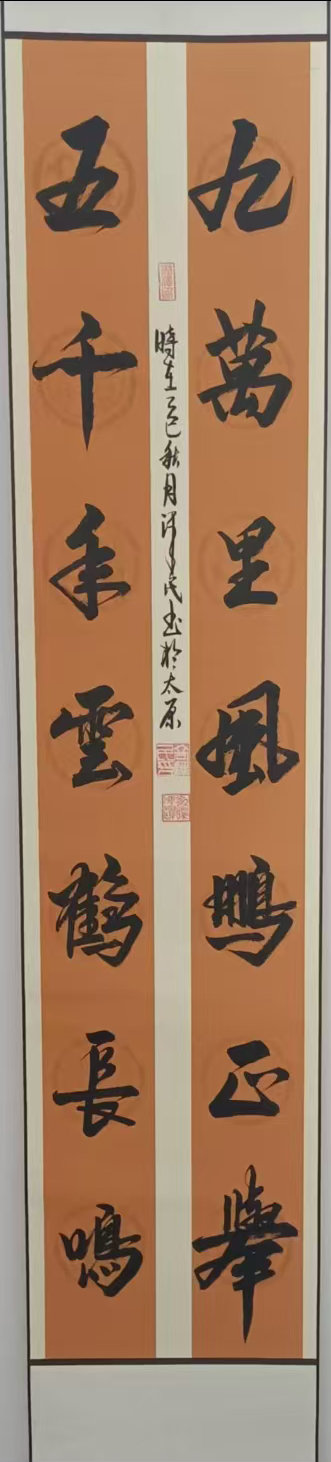 九萬里風鵬正舉
五千年雲鶴長鳴
時在乙巳秋月 民書於太原